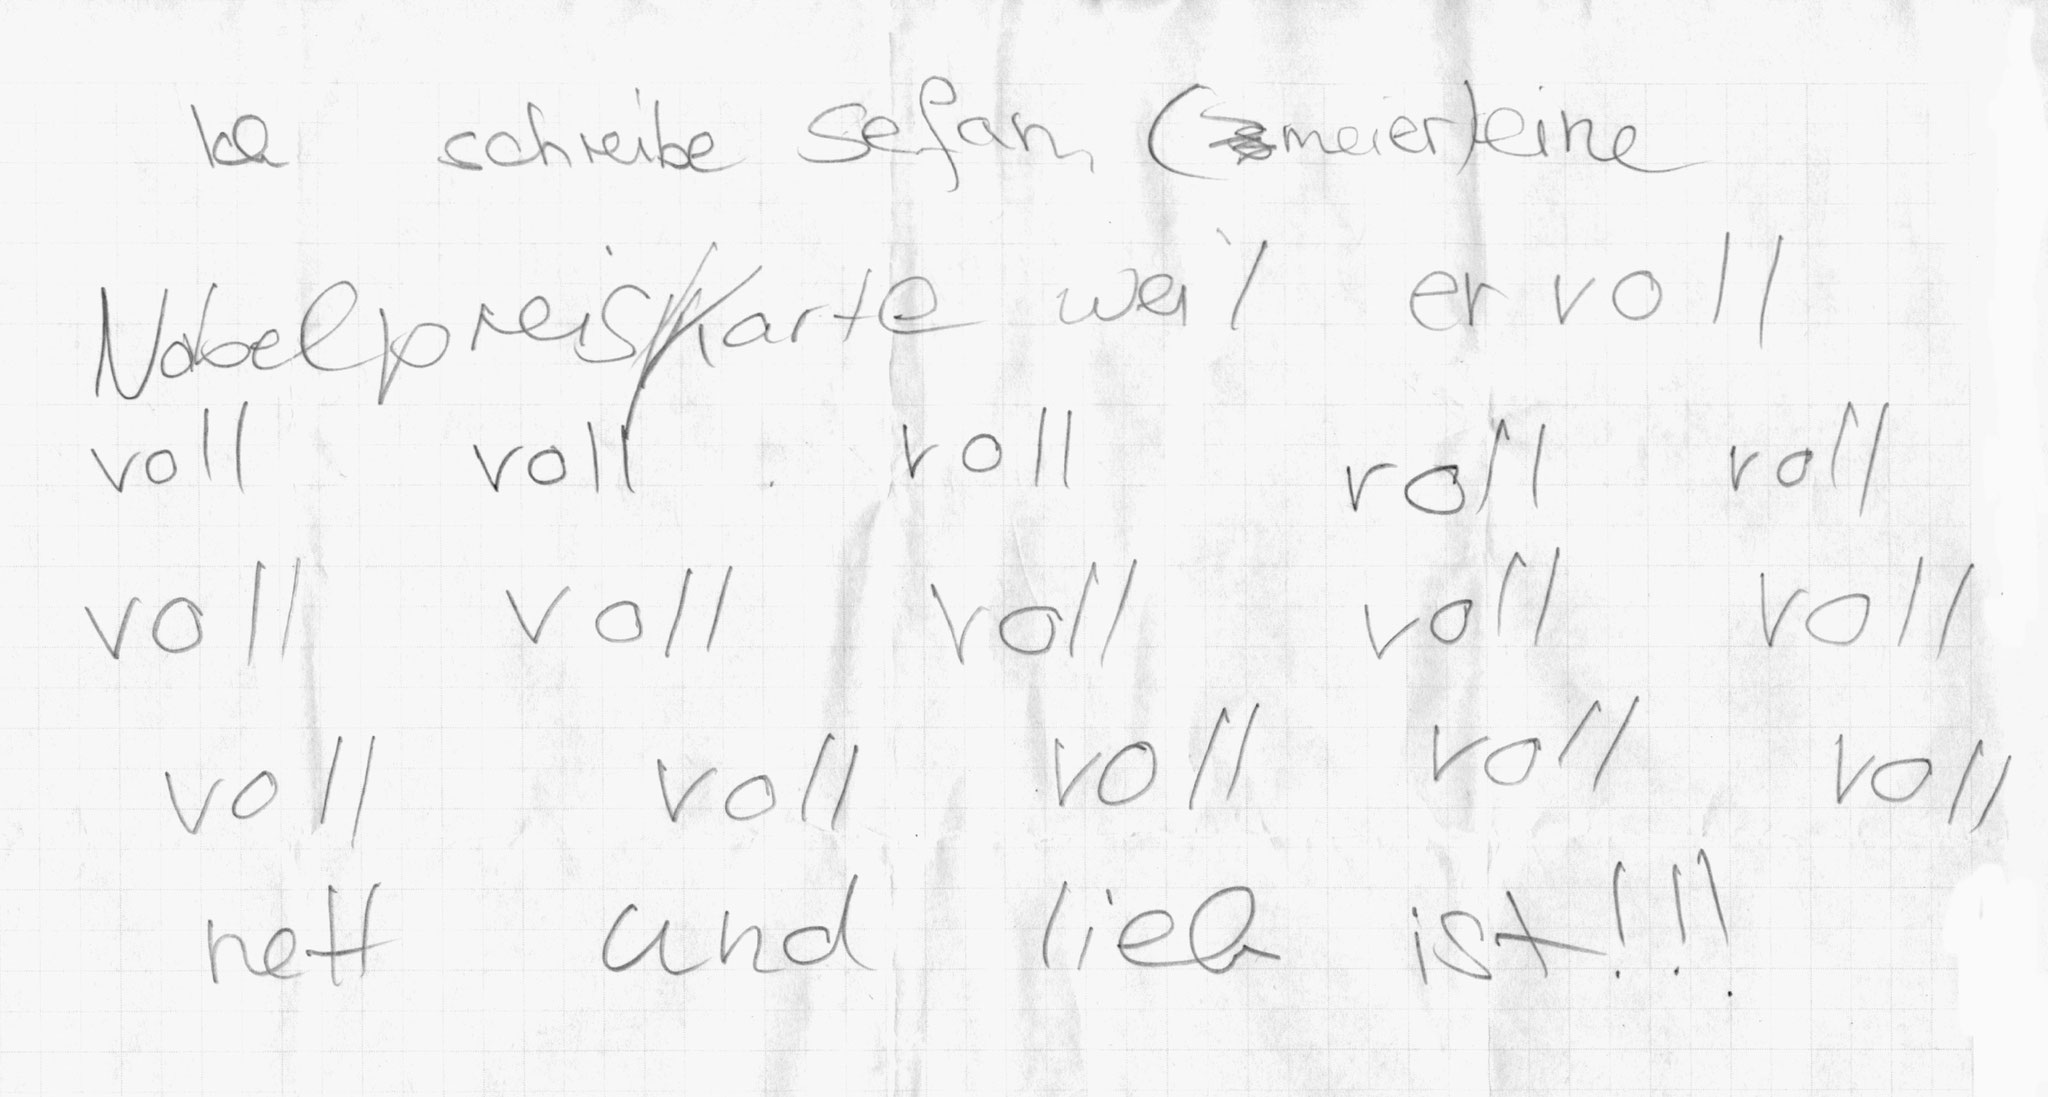 Ich schreibe Sefan (meier) eine
Nobelpreiskarte weil er voll
voll voll voll voll voll
voll voll voll voll voll
voll voll voll voll voll
nett und lieb ist!!!